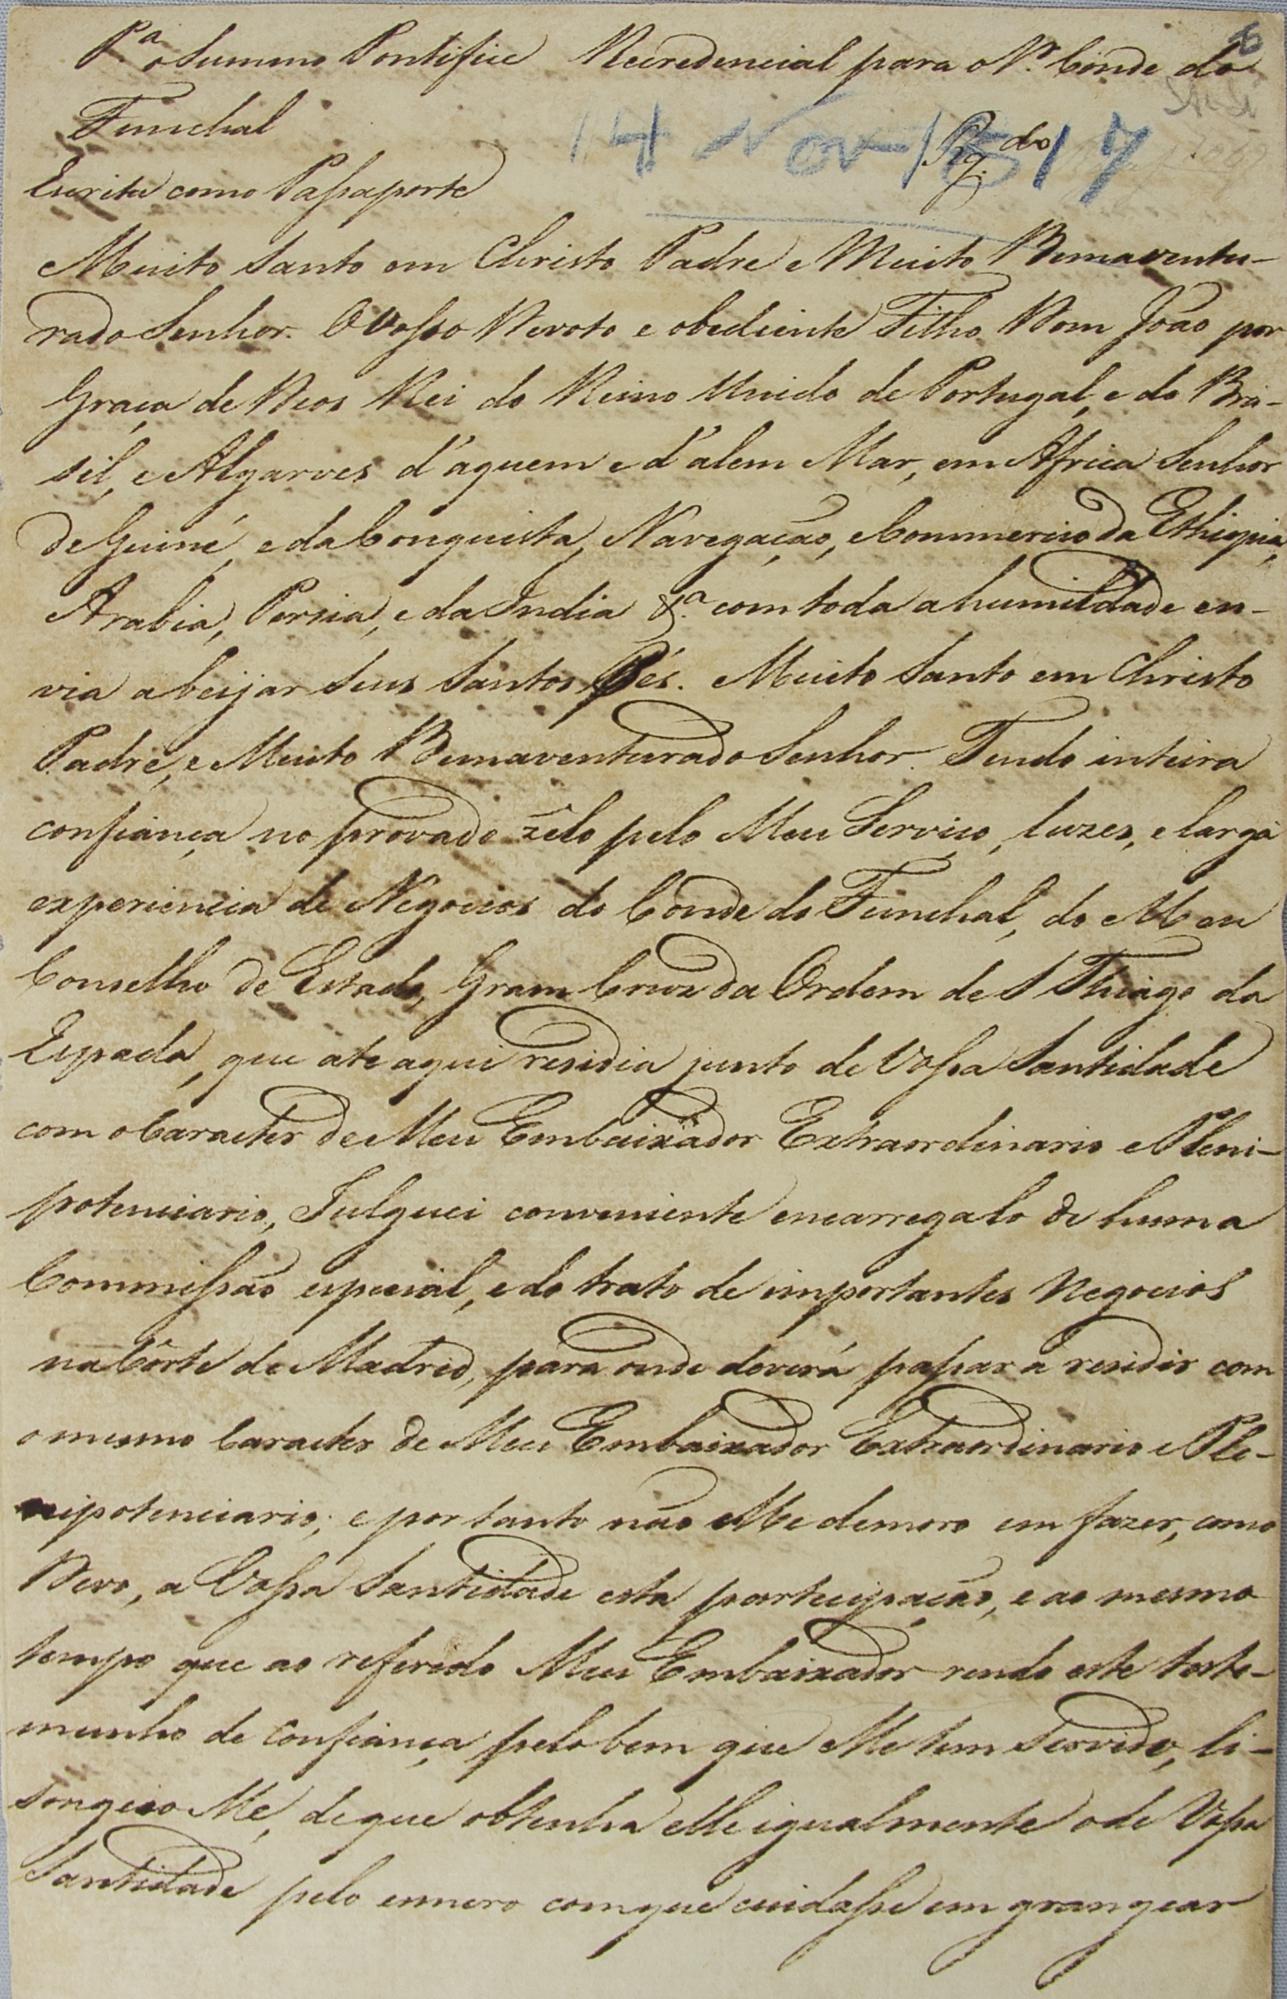 P.ª o Summo Pontifice Recredencial para o S.r Conde do
Funchal
14 Nov 1817 Rg.do
Escrita como Passaporte
Muito Santo em Christo Padre e Muito Bemaventu-
rado Senhor. O Vosso Devoto e obediente Filho Dom João por
Graça de Deos Rei do Reino Unido de Portugal, e do Bra-
sil, e Algarves d'aquem e d'alem Mar, em Africa Senhor
de Guiné, e da Conquista, Navegação, e Commercio da Ethiopia,
Arabia, Persia, e da India &.ª com toda a humildade en-
via a beijar seus Santos Pés. Muito Santo em Christo
Padre, e Muito Bemaventurado Senhor. Tendo inteira
confiança no provado zêlo pelo Meu Serviço, luzes, e larga
experiencia de Negocios do Conde do Funchal, do Meu
Conselho de Estado, Gram Cruz da Ordem de S Thiago da
Espada, que ate aqui residia junto de Vossa Santidade
com o Caracter de Meu Embaixador Extraordinario e Pleni-
potenciario, Julguei conveniente encarregalo de huma
Commissão especial, e do trato de importantes Negocios
na Côrte de Madrid, para onde deverá passar a residir com
o mesmo Caracter de Meu Embaixador Extraordinario e Ple-
nipotenciario; e por tanto não Me demoro em fazer, como
Devo, a Vossa Santidade esta participação, e ao mesmo
tempo que ao referido Meu Embaixador rendo este teste-
munho de confiança pelo bem que Me tem servido, li-
songeio Me, de que obtenha elle igualmente o de Vossa
Santidade pelo esmero com que cuidasse em grangear